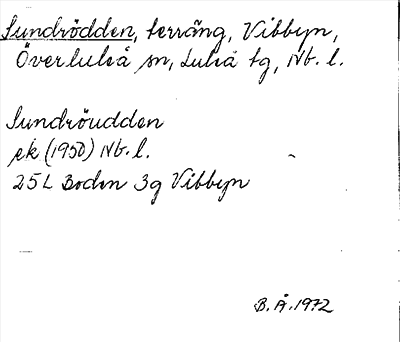 Sundrödden, terräng, Vibbyn,
Överluleå sn, Luleå tg, Nb. l.
Sundröudden
ek (1950) Nb. l.
25 L Boden 3g Vibbyn
B. Å. 1972